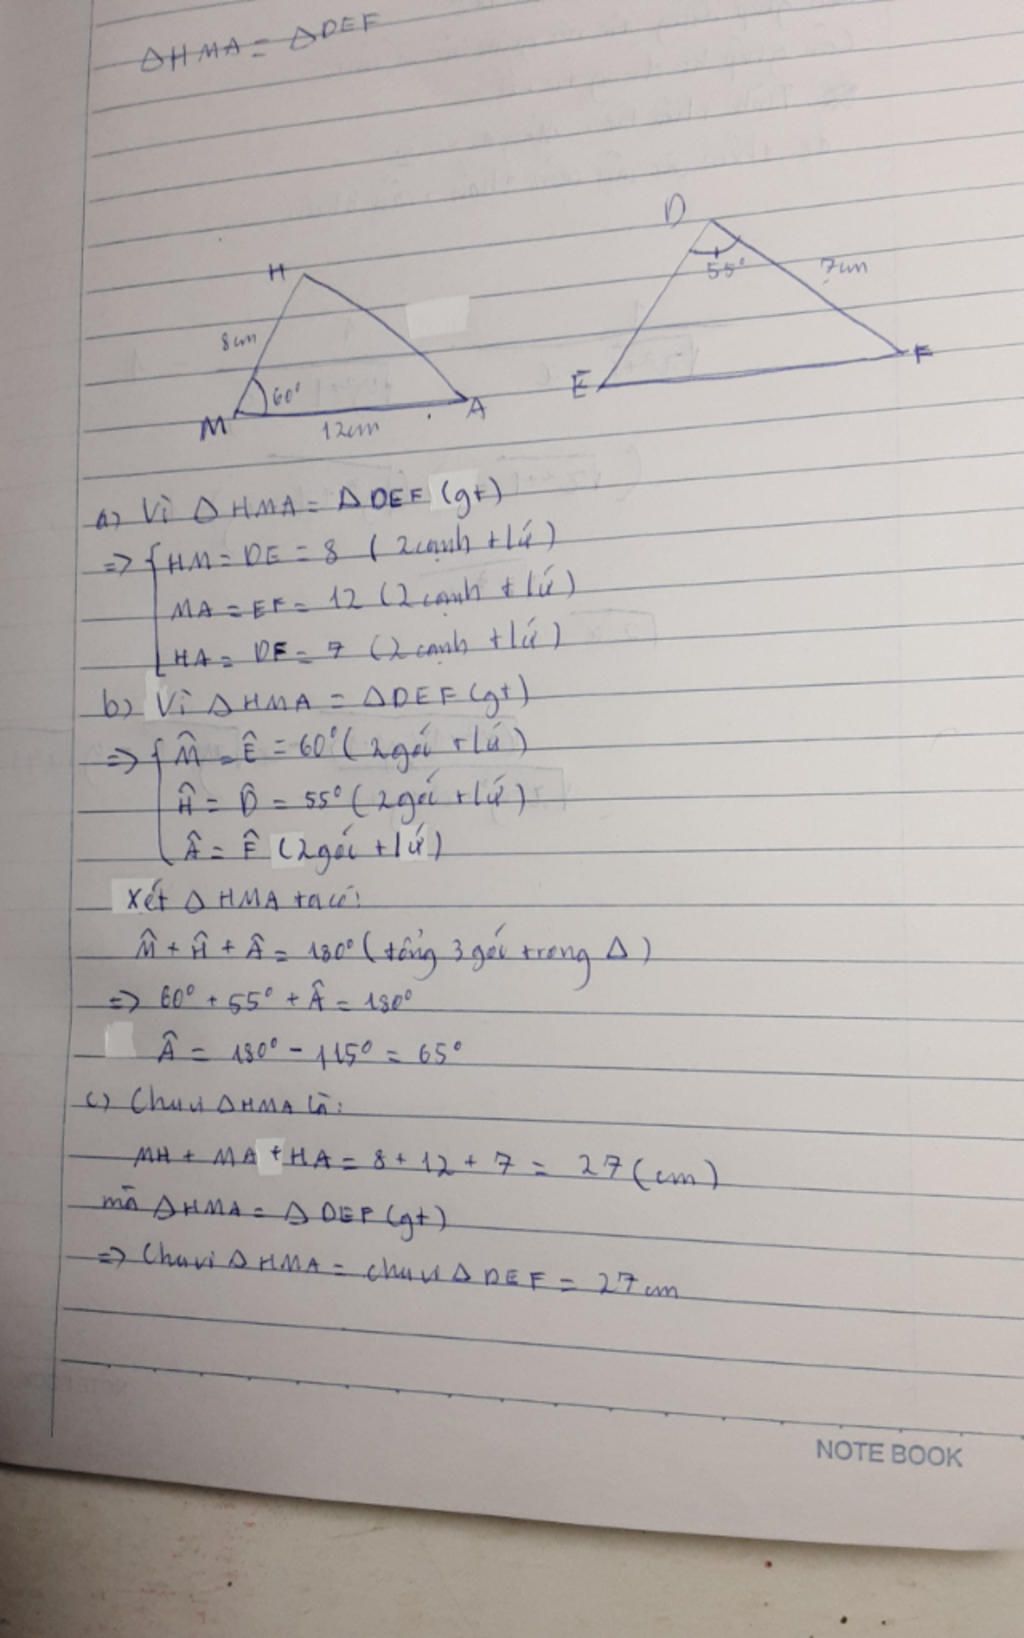 ΔHMA = ΔDEF
D
55°
7cm
H
8cm
E
F
60°
M
A
12cm
a) Vì Δ HMA = Δ DEF (gt)
=> { HM = DE = 8 ( 2 cạnh t/ứ )
MA = EF = 12 ( 2 cạnh t/ứ )
HA = DF = 7 ( 2 cạnh t/ứ )
b) Vì Δ HMA = Δ DEF (gt)
=> { M̂ = Ê = 60° ( 2 góc t/ứ )
Ĥ = D̂ = 55° ( 2 góc t/ứ )
Â = F̂ ( 2 góc t/ứ )
Xét Δ HMA ta có:
M̂ + Ĥ + Â = 180° ( tổng 3 góc trong Δ )
=> 60° + 55° + Â = 180°
Â = 180° - 115° = 65°
c) Chu vi Δ HMA là:
MH + MA + HA = 8 + 12 + 7 = 27 (cm)
mà Δ HMA = Δ DEF (gt)
=> Chu vi Δ HMA = chu vi Δ DEF = 27 cm
NOTE BOOK